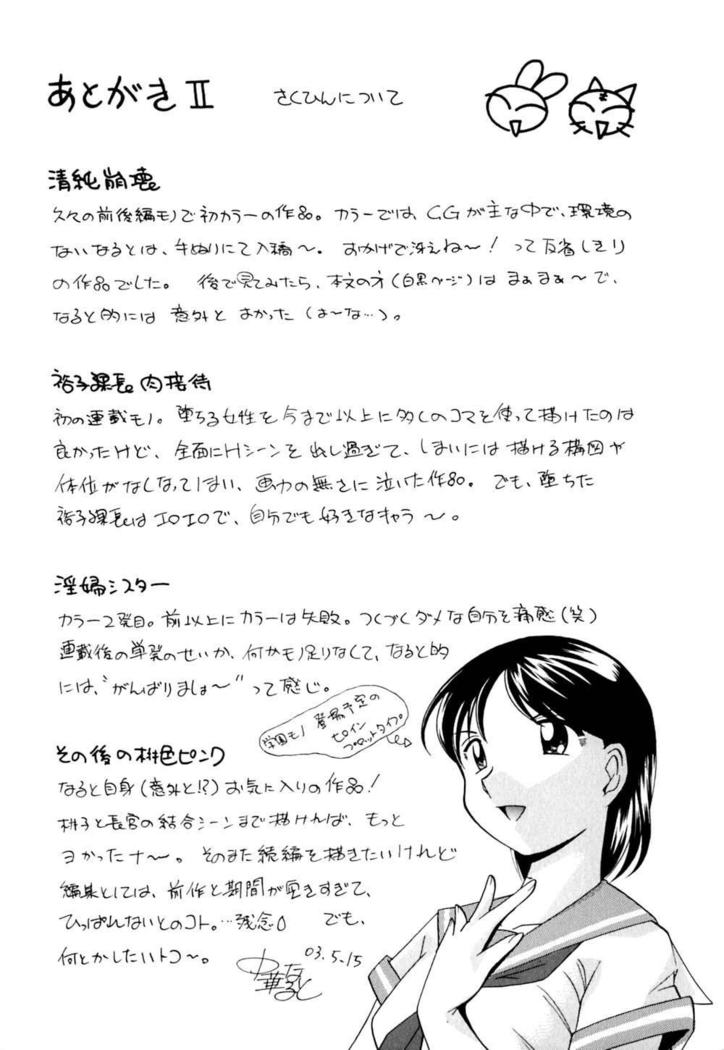 あとがきⅡ さくひんについて
清純崩壊
久々の前後編モノで初カラーの作品。カラーでは、C.Gが主な中で、環境の
ないなるとは、手ぬりにて入稿〜。おかげで冴えね〜！って反省しきり
の作品でした。後で見てみたら、本文の方(白黒ページ)はまぁまぁ〜で、
なると的には意外とよかった(は〜な…)。
裕子課長肉接待
初の連載モノ。堕ちる女性を今まで以上に多くのコマを使って描けたのは
良かったけど、全面にHシーンを出し過ぎて、しまいには描ける構図や
体位がなくなってしまい、画力の無さに泣いた作品。でも、堕ちた
裕子課長はエロエロで、自分でも好きなキャラ〜。
淫婦シスター
カラー2発目。前以上にカラーは失敗。つくづくダメな自分を痛感(笑)
連載後の単発のせいか、何かモノ足りなくて、なると的
には、“がんばりましょ〜”って感じ。
学園モノ登場予定の
ヒロイン
プロットタイプ
その後の桃色ピンク
なると自身(意外と!?)お気に入りの作品！
桃子と長官の結合シーンまで描ければ、もっと
ヨかったナ〜。そのまた続編を描きたいけれど
編集としては、前作と期間が空きすぎて、
ひっぱれないとのコト。…残念。でも、
何とかしたいトコ〜。
03.5.15
中華なると